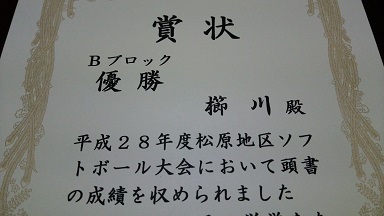 賞状
Bブロック
優勝
櫛川殿
平成28年度松原地区ソフ
トボール大会において頭書
の成績を収められました